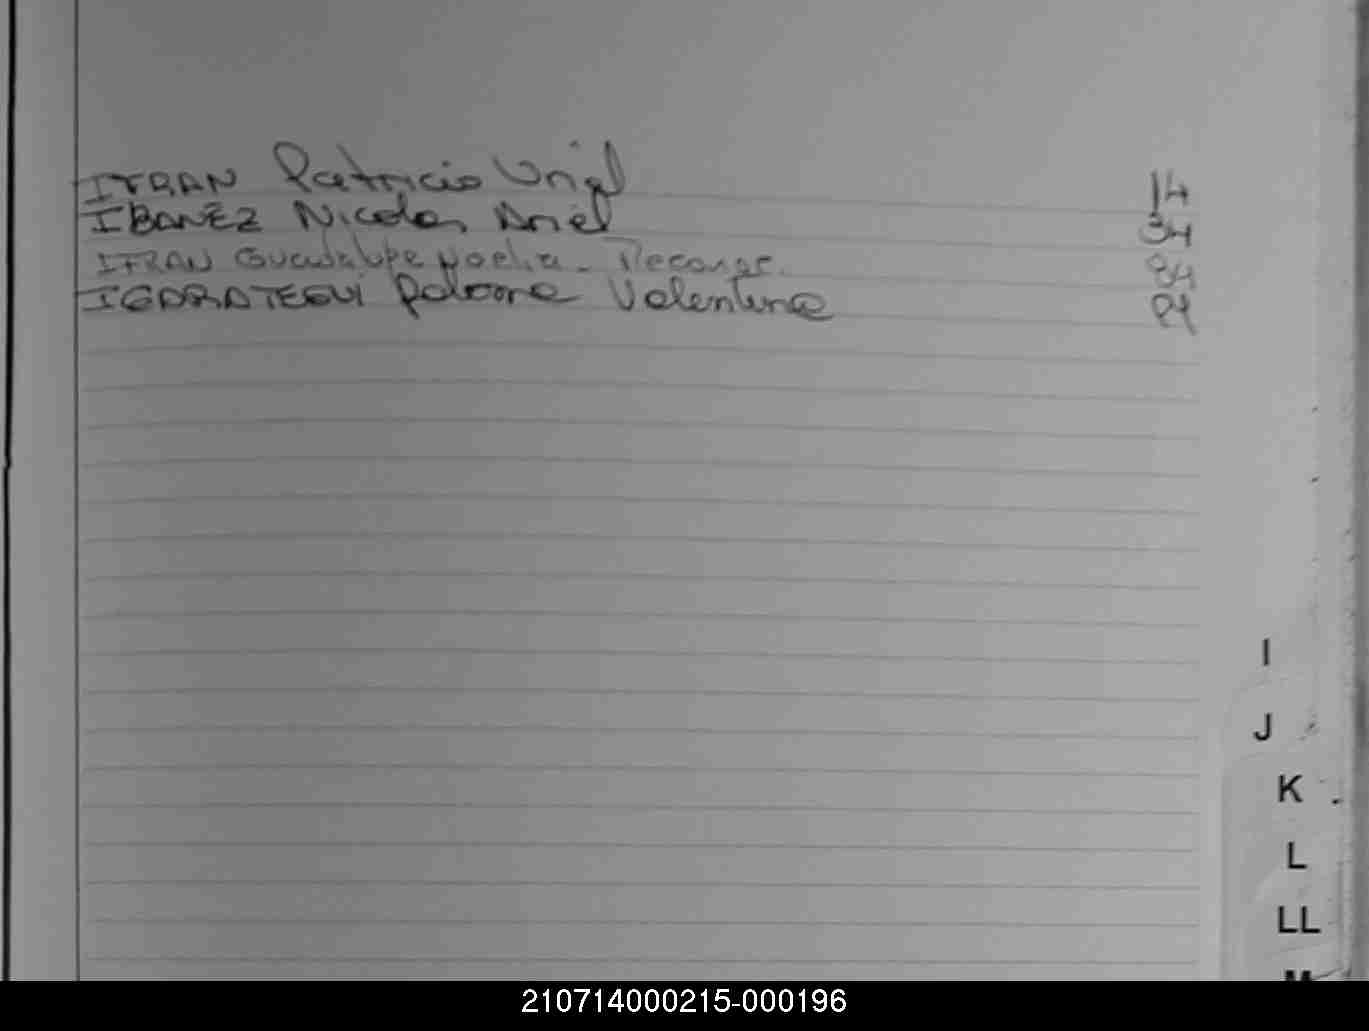 IFRAN Patricio Uriel 14
IBAÑEZ Nicolas Ariel 34
IFRAN Guadalupe Noelia - Reconoc. 84
IGARATEGUI Paloma Valentina
I
J
K
L
LL
M
210714000215-000196